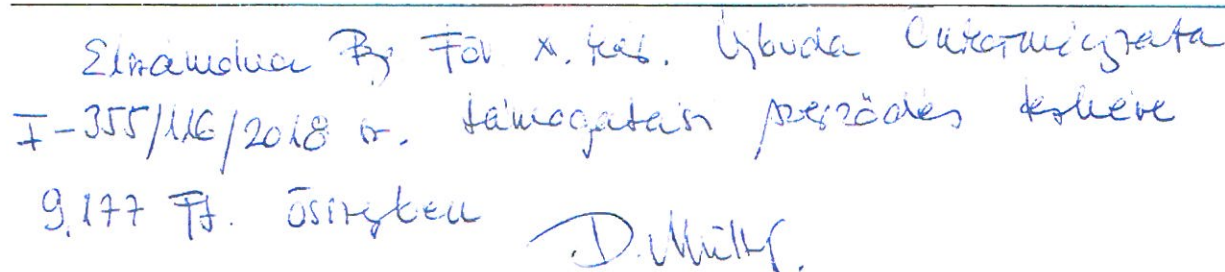 Elszámolva Bp Főv XI. ker. Újbuda Önkormányzata
I-355/116/2018 sz. támogatási szerződés terhére
9.177 Ft. összegben
D. Müller